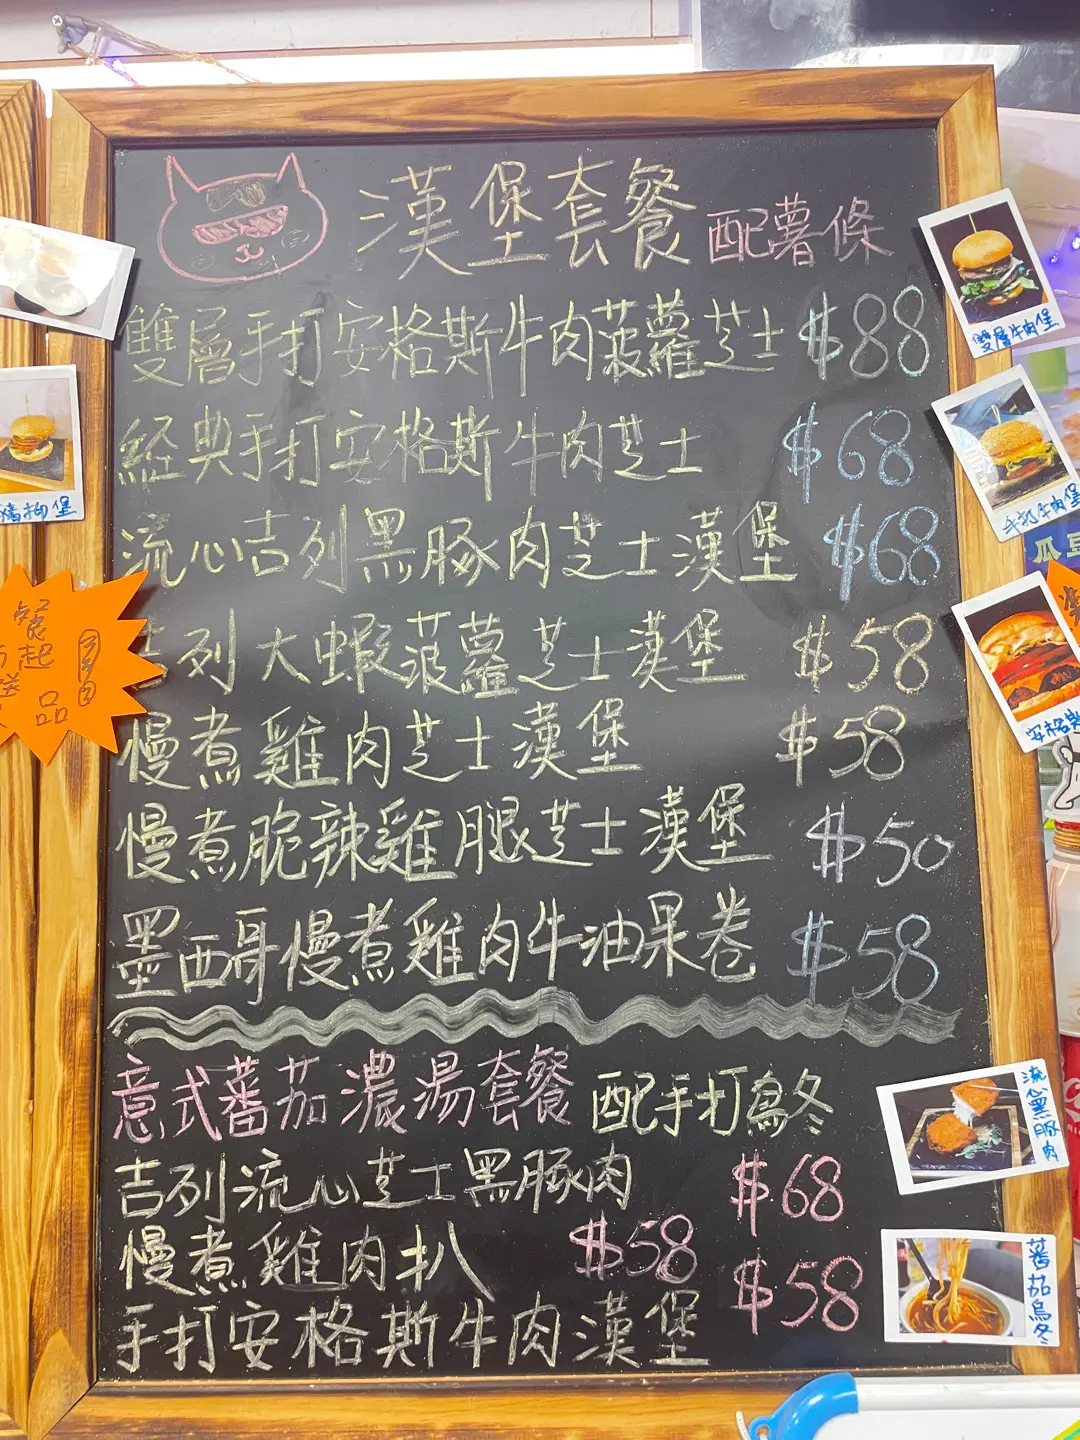 漢堡套餐 配薯條
雙層手打安格斯牛肉菠蘿芝士 $88
經典手打安格斯牛肉芝士 $68
流心吉列黑豚肉芝士漢堡 $68
吉列大蝦菠蘿芝士漢堡 $58
慢煮雞肉芝士漢堡 $58
慢煮脆辣雞腿芝士漢堡 $50
墨西哥慢煮雞肉牛油果卷 $58
意式蕃茄濃湯套餐 配手打烏冬
吉列流心芝士黑豚肉 $68
慢煮雞肉扒 $58
手打安格斯牛肉漢堡 $58
雙層牛肉堡
手打牛肉堡
瓜豆
安格斯
流心黑豚肉
蕃茄烏冬
柳堡
餐
起
送
品